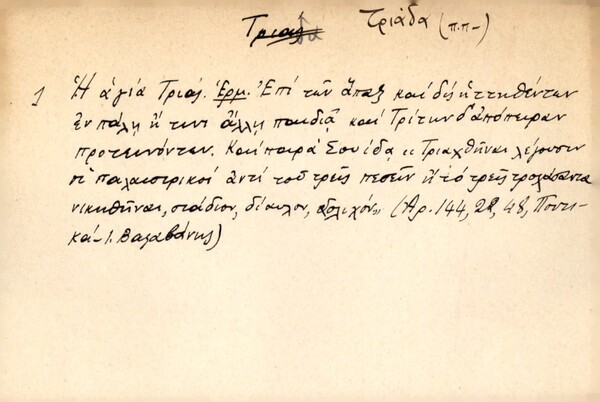 Τριάδα Τριάδα (π.π-)
1 Ἡ ἁγία Τριάς. Ἑρμ. Ἐπί τῶν ἅπαξ καί δίς ἡττηθέντων
ἐν πάλῃ ἤ τινι ἄλλῃ παιδιᾷ καί τρίτην δ' ἀπόπειραν
προτεινόντων. Καί παρά Σουΐδᾳ "Τριαχθῆναι λέγουσιν
οἱ παλαιστρικοί ἀντί τοῦ τρίς πεσεῖν ἤ τό τρεῖς
νικηθῆναι, στάδιον, δίαυλον, δόλιχον" (Ἀρ. 144, 28, 48, Ποντι-
κά- Ι. Βαλαβάνης)